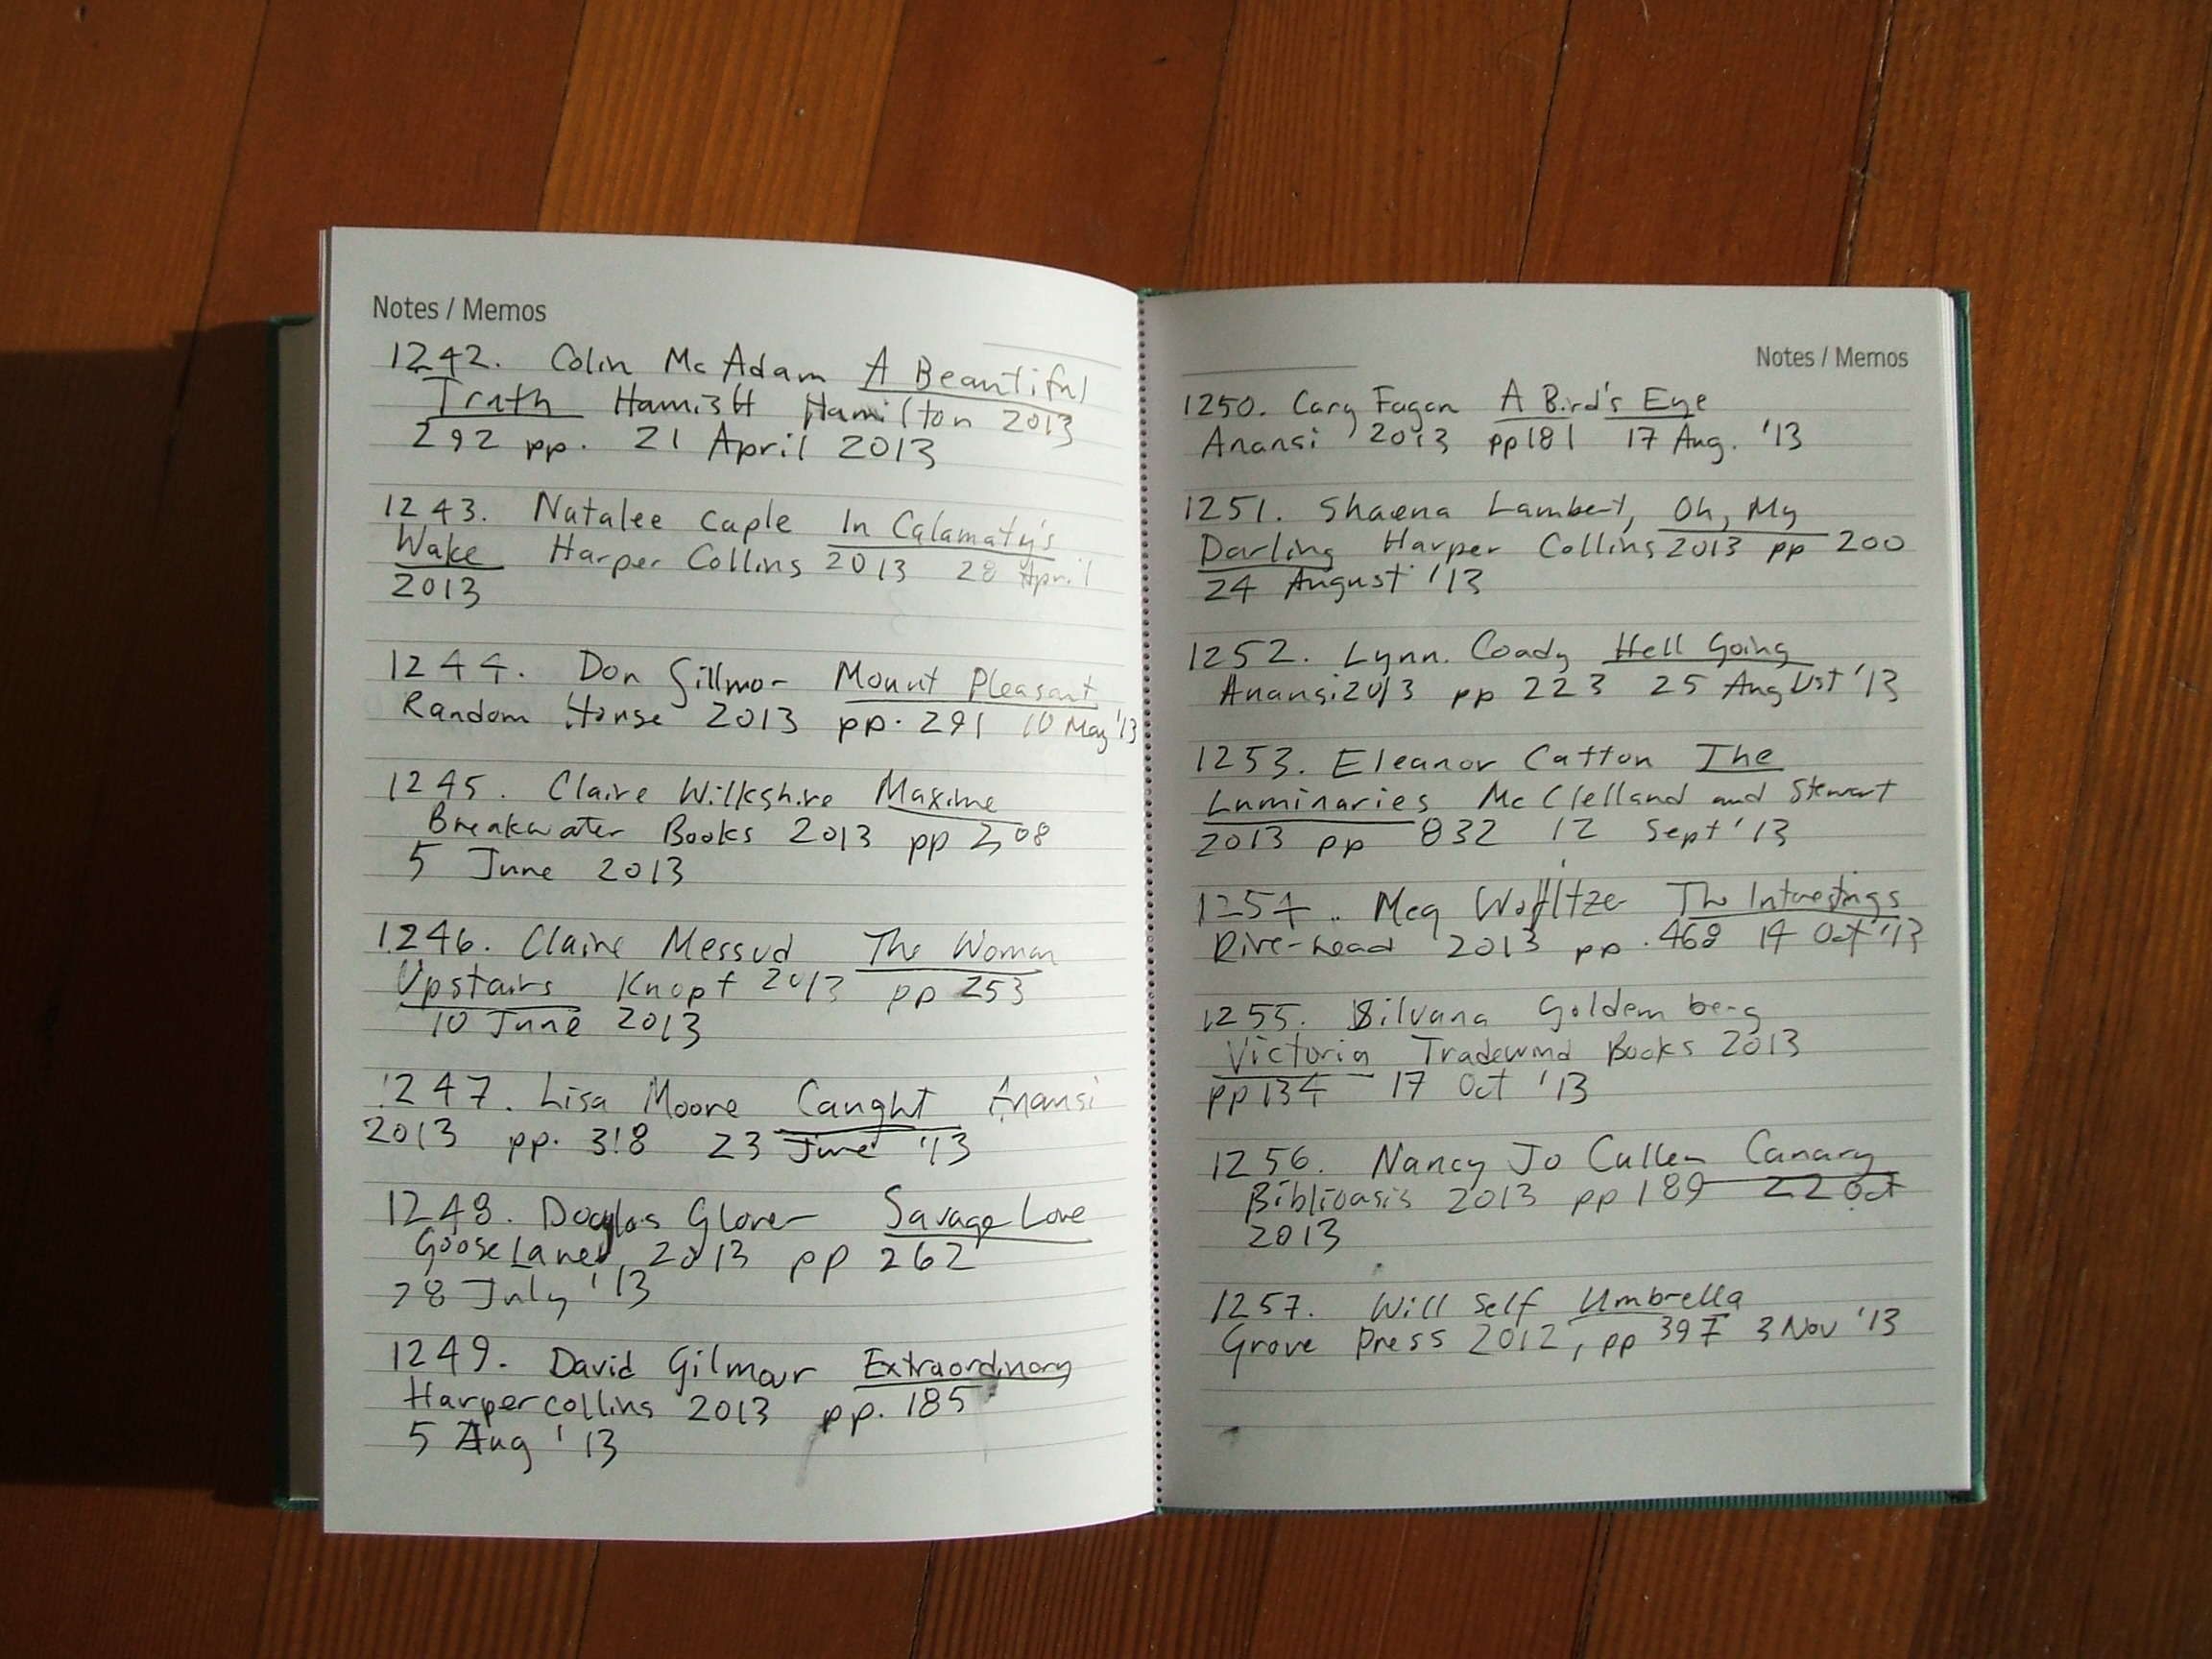 Notes / Memos
1242. Colin McAdam A Beautiful
Truth Hamish Hamilton 2013
292 pp. 21 April 2013
1243. Natalee Caple In Calamaty's
Wake Harper Collins 2013 28 April
2013
1244. Don Gillmor Mount Pleasant
Random House 2013 pp. 291 10 May '13
1245. Claire Wilkshire Maxine
Breakwater Books 2013 pp 208
5 June 2013
1246. Claire Messud The Woman
Upstairs Knopf 2013 pp 253
10 June 2013
1247. Lisa Moore Caught Anansi
2013 pp. 318 23 June '13
1248. Douglas Glover Savage Love
Goose Lane, 2013 pp 262
28 July '13
1249. David Gilmour Extraordinary
Harpercollins 2013 pp. 185
5 Aug '13
Notes / Memos
1250. Cary Fagan A Bird's Eye
Anansi 2013 pp 181 17 Aug. '13
1251. Shaena Lambert, Oh, My
Darling Harper Collins 2013 pp 200
24 August '13
1252. Lynn Coady Hell Going
Anansi 2013 pp 223 25 August '13
1253. Eleanor Catton The
Luminaries McClelland and Stewart
2013 pp 832 12 Sept '13
1254. Meg Wolitzer The Interestings
River-head 2013 pp. 468 14 Oct '13
1255. Silvana Goldemberg
Victoria Tradewind Books 2013
pp 134 17 Oct '13
1256. Nancy Jo Cullen Canary
Biblioasis 2013 pp 189 22 Oct
2013
1257. Will Self Umbrella
Grove Press 2012, pp 397 3 Nov '13